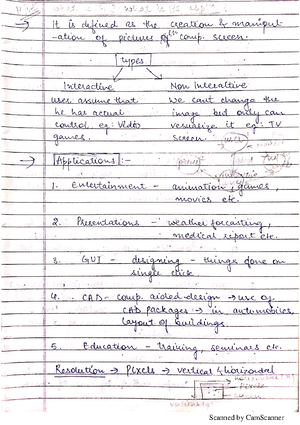 → It is defined as the creation & manipul-
ation of pictures on comp. screen.
Types
Interactive
Non Interactive
user assume that
he has actual
control. eg: Video
games.
We cant change the
image but only can
visualize it eg: TV
screen.
→ Applications :-
1. Entertainment - animation, games,
movies etc.
2. Presentations - weather forcasting,
medical report etc.
3. GUI - designing - things done on
single click
4. CAD - comp. aided design → use of
CAD packages → in automobiles,
layout of buildings.
5. Education - training, seminars etc.
Resolution → Pixels → vertical & horizontal
Scanned by CamScanner